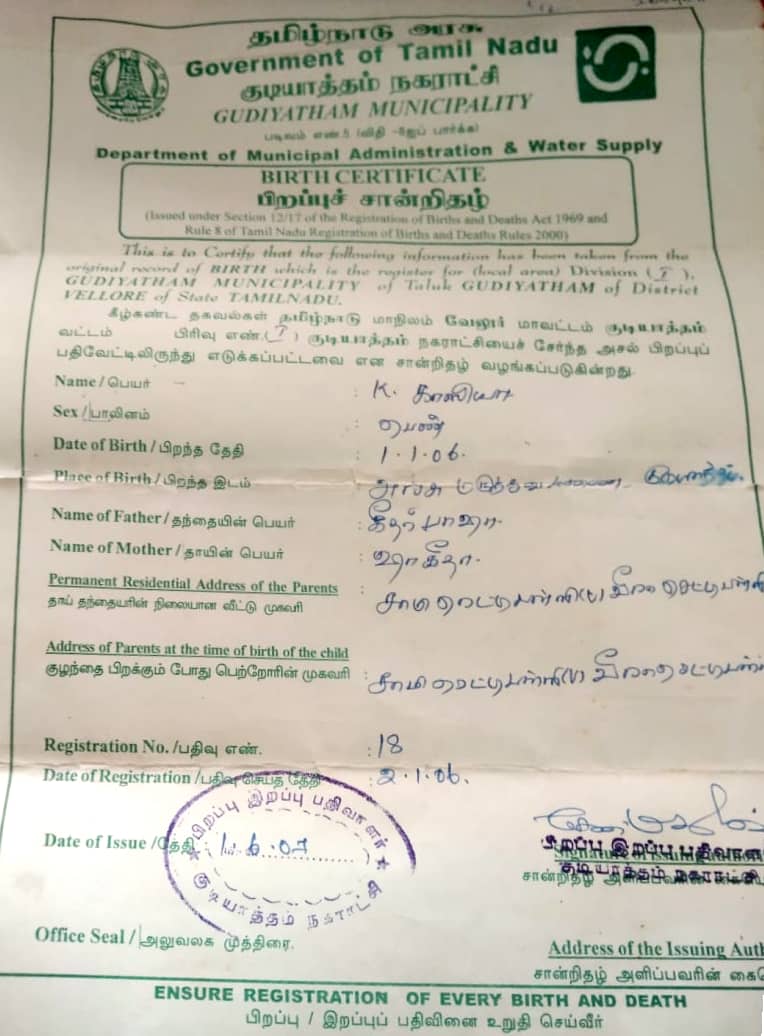 தமிழ்நாடு அரசு
Government of Tamil Nadu
குடியாத்தம் நகராட்சி
GUDIYATHAM MUNICIPALITY
படிவம் எண்.5 (விதி -8ஐப் பார்க்க)
Department of Municipal Administration & Water Supply
BIRTH CERTIFICATE
பிறப்புச் சான்றிதழ்
(Issued under Section 12/17 of the Registration of Births and Deaths Act 1969 and
Rule 8 of Tamil Nadu Registration of Births and Deaths Rules 2000)
This is to Certify that the following information has been taken from the
original record of BIRTH which is the register for (local area) Division (I),
GUDIYATHAM MUNICIPALITY of Taluk GUDIYATHAM of District
VELLORE of State TAMILNADU.
கீழ்கண்ட தகவல்கள் தமிழ்நாடு மாநிலம் வேலூர் மாவட்டம் குடியாத்தம்
வட்டம் பிரிவு எண்.(I) குடியாத்தம் நகராட்சியைச் சேர்ந்த அசல் பிறப்புப்
பதிவேட்டிலிருந்து எடுக்கப்பட்டவை என சான்றிதழ் வழங்கப்படுகின்றது.
Name / பெயர் : K.
Sex / பாலினம் : பெண்
Date of Birth / பிறந்த தேதி : 1.1.06.
Place of Birth / பிறந்த இடம் : அரசு மருத்துவமனை
Name of Father / தந்தையின் பெயர் :
Name of Mother / தாயின் பெயர் : ஷாகீதா.
Permanent Residential Address of the Parents :
தாய் தந்தையரின் நிலையான வீட்டு முகவரி
Address of Parents at the time of birth of the child
குழந்தை பிறக்கும் போது பெற்றோரின் முகவரி :
Registration No. /பதிவு எண். : 18
Date of Registration /பதிவு செய்த தேதி : 2.1.06.
பிறப்பு இறப்பு பதிவாளர்
குடியாத்தம் நகராட்சி
Date of Issue /தேதி
பிறப்பு இறப்பு பதிவாள
குடியாத்தம் நகராட்சி
சான்றிதழ்
Office Seal / அலுவலக முத்திரை.
Address of the Issuing Auth
சான்றிதழ் அளிப்பவரின்
ENSURE REGISTRATION OF EVERY BIRTH AND DEATH
பிறப்பு / இறப்புப் பதிவினை உறுதி செய்வீர்